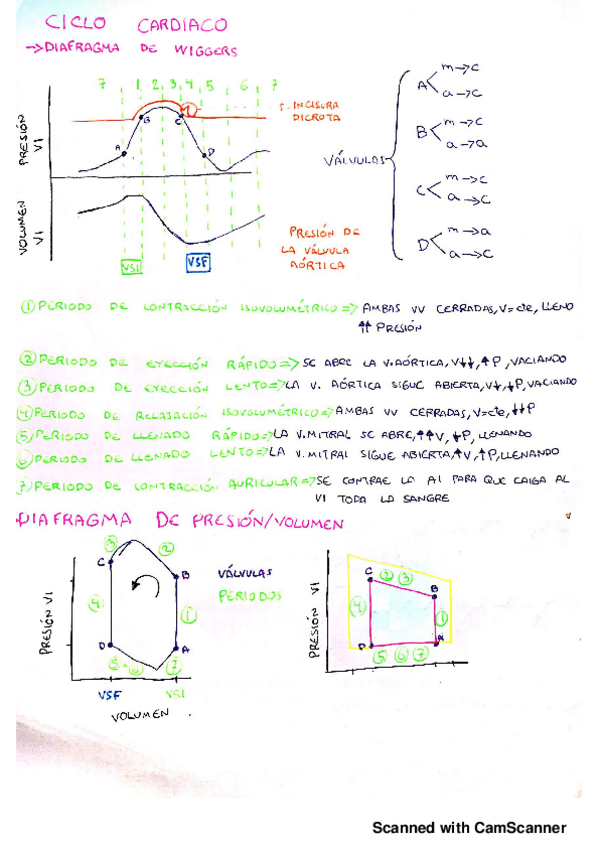 CICLO CARDIACO
→DIAFRAGMA DE WIGGERS
7 1 2 3 4 5 6 7
INCISURA
DICROTA
PRESIÓN
VI
A
B
C
D
VÁLVULAS
A m→c
a→c
B m→c
a→a
C m→c
a→c
D m→a
a→c
VOLUMEN
VI
PRESIÓN DE
LA VÁLVULA
AÓRTICA
VSL
VSF
① PERIODO DE CONTRACCIÓN ISOVOLUMÉTRICO => AMBAS VV CERRADAS, V=cte, LLENO
⇈ PRESIÓN
② PERIODO DE EYECCIÓN RÁPIDO => SE ABRE LA V.AÓRTICA, V↓↓, ↑P, VACIANDO
③ PERIODO DE EYECCIÓN LENTO => LA V. AÓRTICA SIGUE ABIERTA, V↓, ↓P, VACIANDO
④ PERIODO DE RELAJACIÓN ISOVOLUMÉTRICO => AMBAS VV CERRADAS, V=cte, ↓↓P
⑤ PERIODO DE LLENADO RÁPIDO => LA V.MITRAL SE ABRE, ↑↑V, ↓P, LLENANDO
⑥ PERIODO DE LLENADO LENTO => LA V. MITRAL SIGUE ABIERTA, ↑V, ↑P, LLENANDO
⑦ PERIODO DE CONTRACCIÓN AURICULAR => SE CONTRAE LA AI PARA QUE CAIGA AL
VI TODA LA SANGRE
DIAFRAGMA DE PRESIÓN/VOLUMEN
PRESIÓN VI
③ ②
C
B
④ ①
D
A
⑤ ⑥ ⑦
VSF
VSL
VOLUMEN
VÁLVULAS
PERIODOS
PRESIÓN VI
C ② ③
B
④ ①
D A
⑤ ⑥ ⑦
Scanned with CamScanner